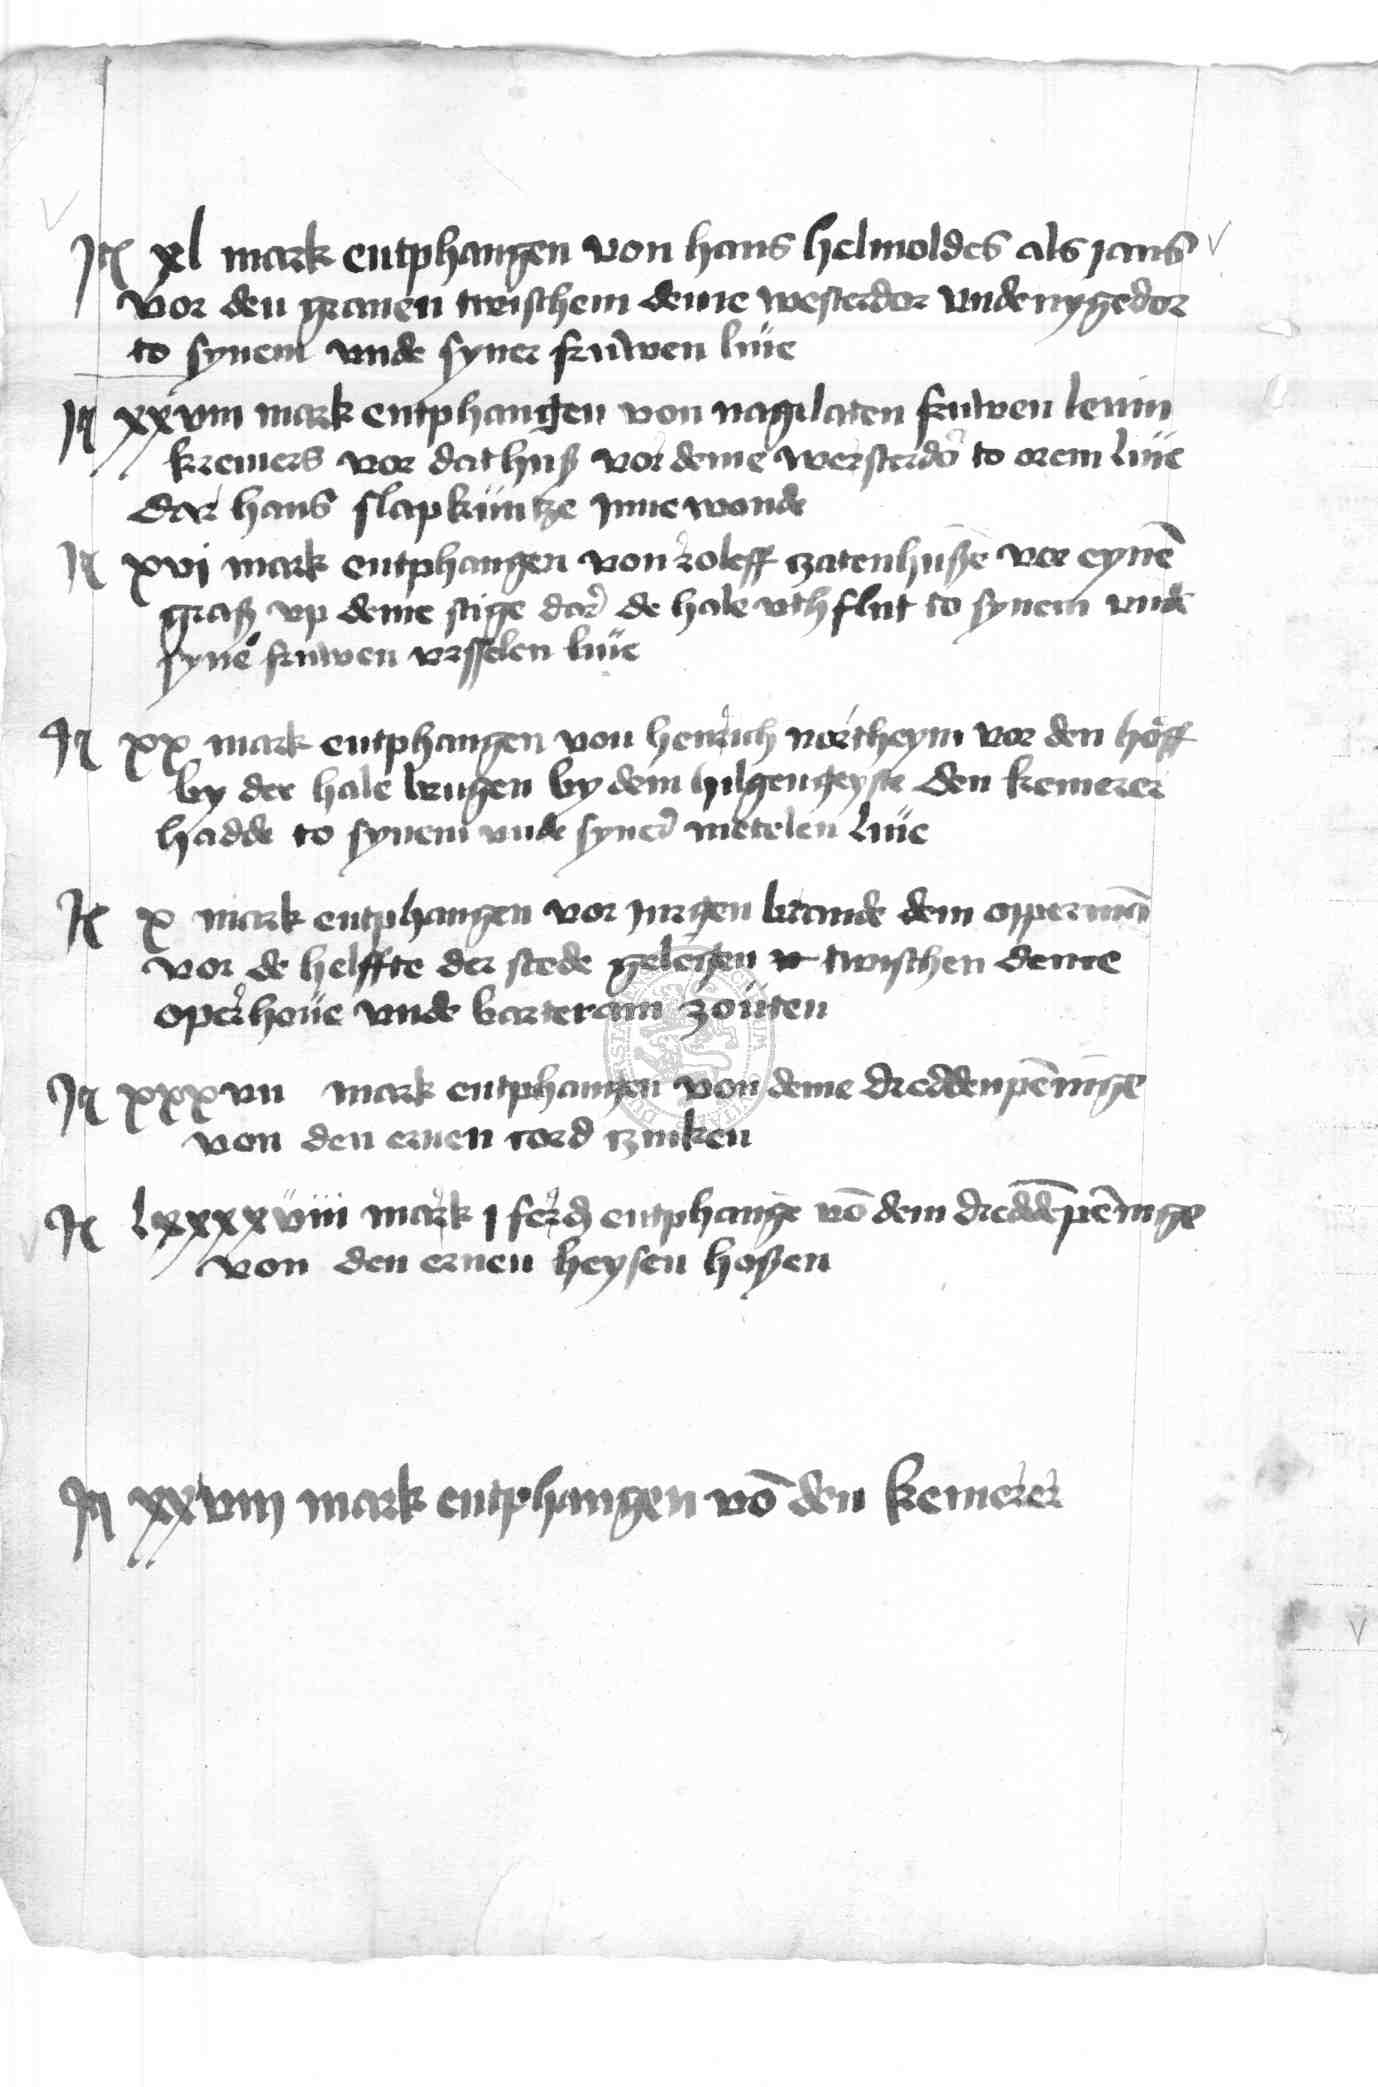 It xl mark entphangen von hans helmoldes als jans
vor den grauen twischem deme westerdor vnde nygedor
to synem vnde syner fruwen liue
It xxviii mark entphangen von nagelaten fruwen
kremers vor dat huß vor deme westerdor to orem liue
dar hans slapkuntze inne wonde
It xvi mark entphangen von roleff tzatenhußē vor eynē
graß vp deme stige dar de hale vth flut to synem vnde
synē fruwen vrsselen liue
It xx mark entphangen von henrich northeym vor den hoff
by der hale brugen by dem hilgen geyste den kemerer
hadde to synem vnde syner metelen liue
It x mark entphangen vor jurgen brande dem oppermā
vor de helffte der stede gelegen twischen deme
operhoue vnde barteram zouten
It xxxvii mark entphangen von deme dreddenpēninge
von den eruen cord
It lxxxxviii mark i ferd entphangē vō dem dreddēpēninge
von den eruen heysen hoßen
It xxviii mark entphangen vō den kemerer